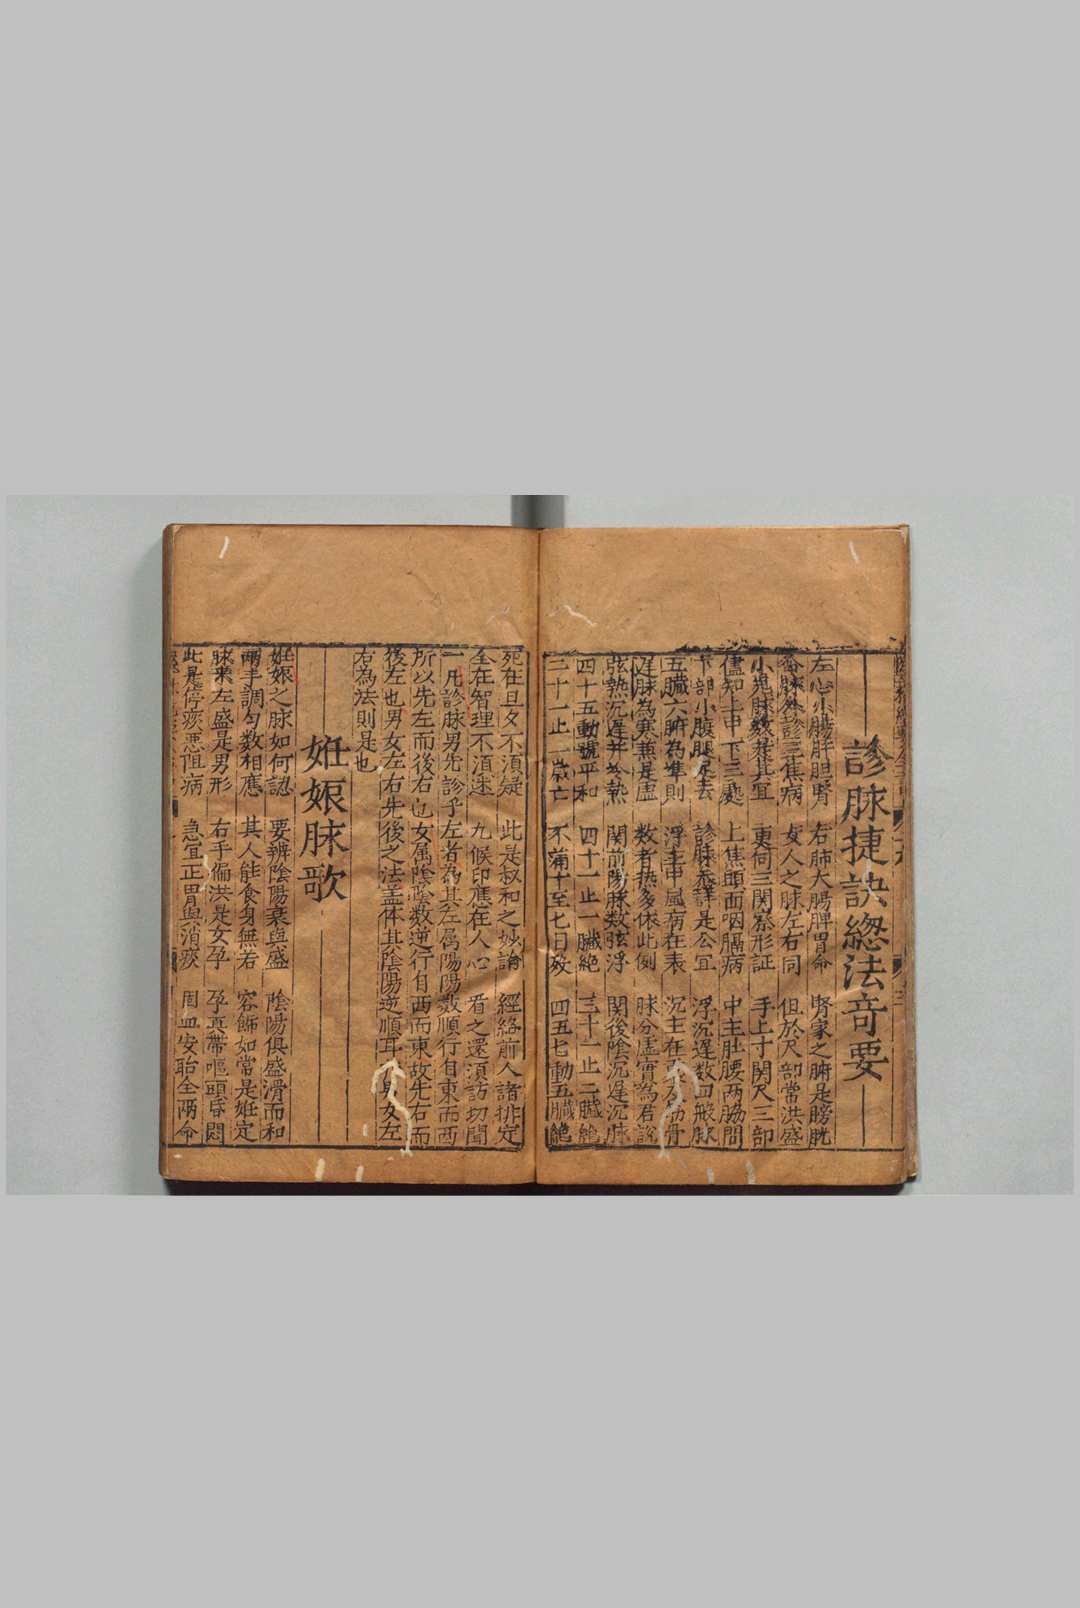 診脉捷訣緫法奇要
左心小腸肝胆腎 右肺大腸脾胃命 腎家之腑是膀胱
命脉外診三焦病 女人之脉左右同 但於尺部當洪盛
小児脉数葬其宜 更伺三関察形証 手上寸関尺三部
儘知上中下三處 上焦頭面咽膈病 中主肚腰两脇間
下部小腹腿足去 診脉𠫵詳是公宜 浮沉遅数四般脉
五臟六腑為準則 浮主中風病在表 沉主在裏筋骨
遅脉為寒兼是虛 数者热多依此例 脉分虛實為君説
弦熱沉遅并冷熱 関前陽脉数弦浮 関後陰沉遅沉脉
四十五動號平和 四十一止一臟絶 三十一止二臟絶
二十一止一歲亡 不滿十至七日殁 四五七動五臟絶
死在旦夕不須疑 此是叔和之妙論 經絡前人諸排定
全在智理不須迷 九候印應在人心 看之還須訪切聞
一凡診脉男先診乎左者為其左属陽陽数順行自東而西
所以先左而後右也女属陰陰数逆行自西而東故先右而
後左也男女左右先後之法盖体其陰陽逆順耳 男女左
右為法則是也
妊娠脉歌
妊娠之脉如何認 要辨陰陽衰與盛 陰陽俱盛滑而和
兩手調匀数相應 其人能食身無若 容餙如常是妊定
脉来左盛是男形 右手偏洪是女孕 孕要帶嘔頭昏悶
此是停痰惡阻病 急宜正胃與消痰 固血安胎全两命